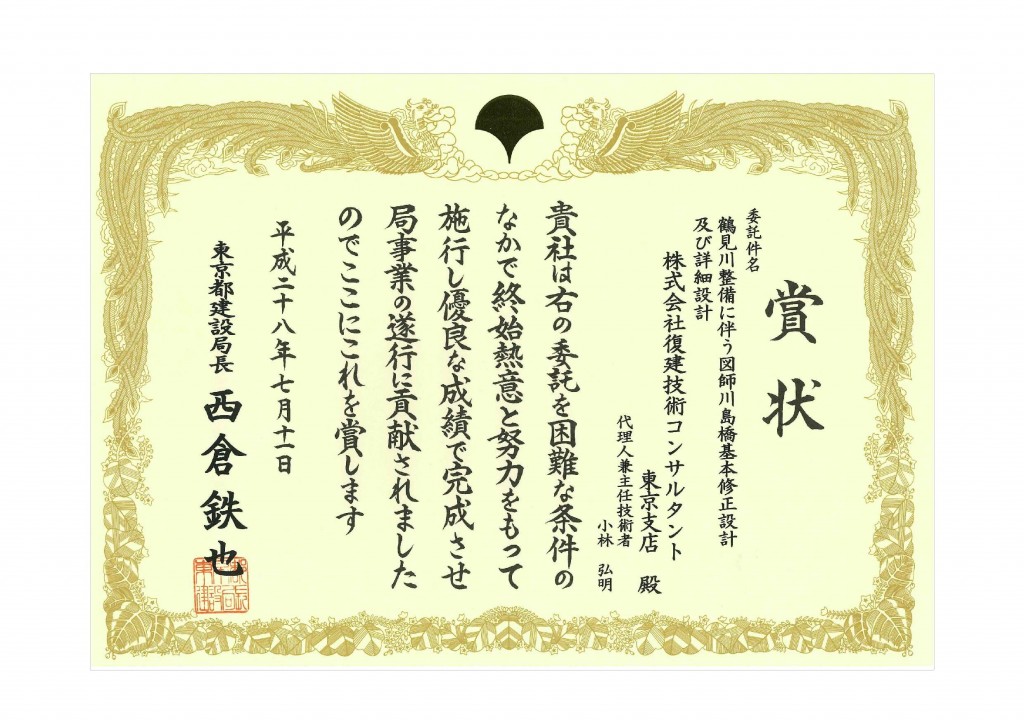 賞状
委託件名
鶴見川整備に伴う図師川島橋基本修正設計
及び詳細設計
株式会社復建技術コンサルタント
東京支店 殿
代理人兼主任技術者
小林 弘明
貴社は右の委託を困難な条件の
なかで終始熱意と努力をもって
施行し優良な成績で完成させ
局事業の遂行に貢献されました
のでここにこれを賞します
平成二十八年七月十一日
東京都建設局長 西倉鉄也